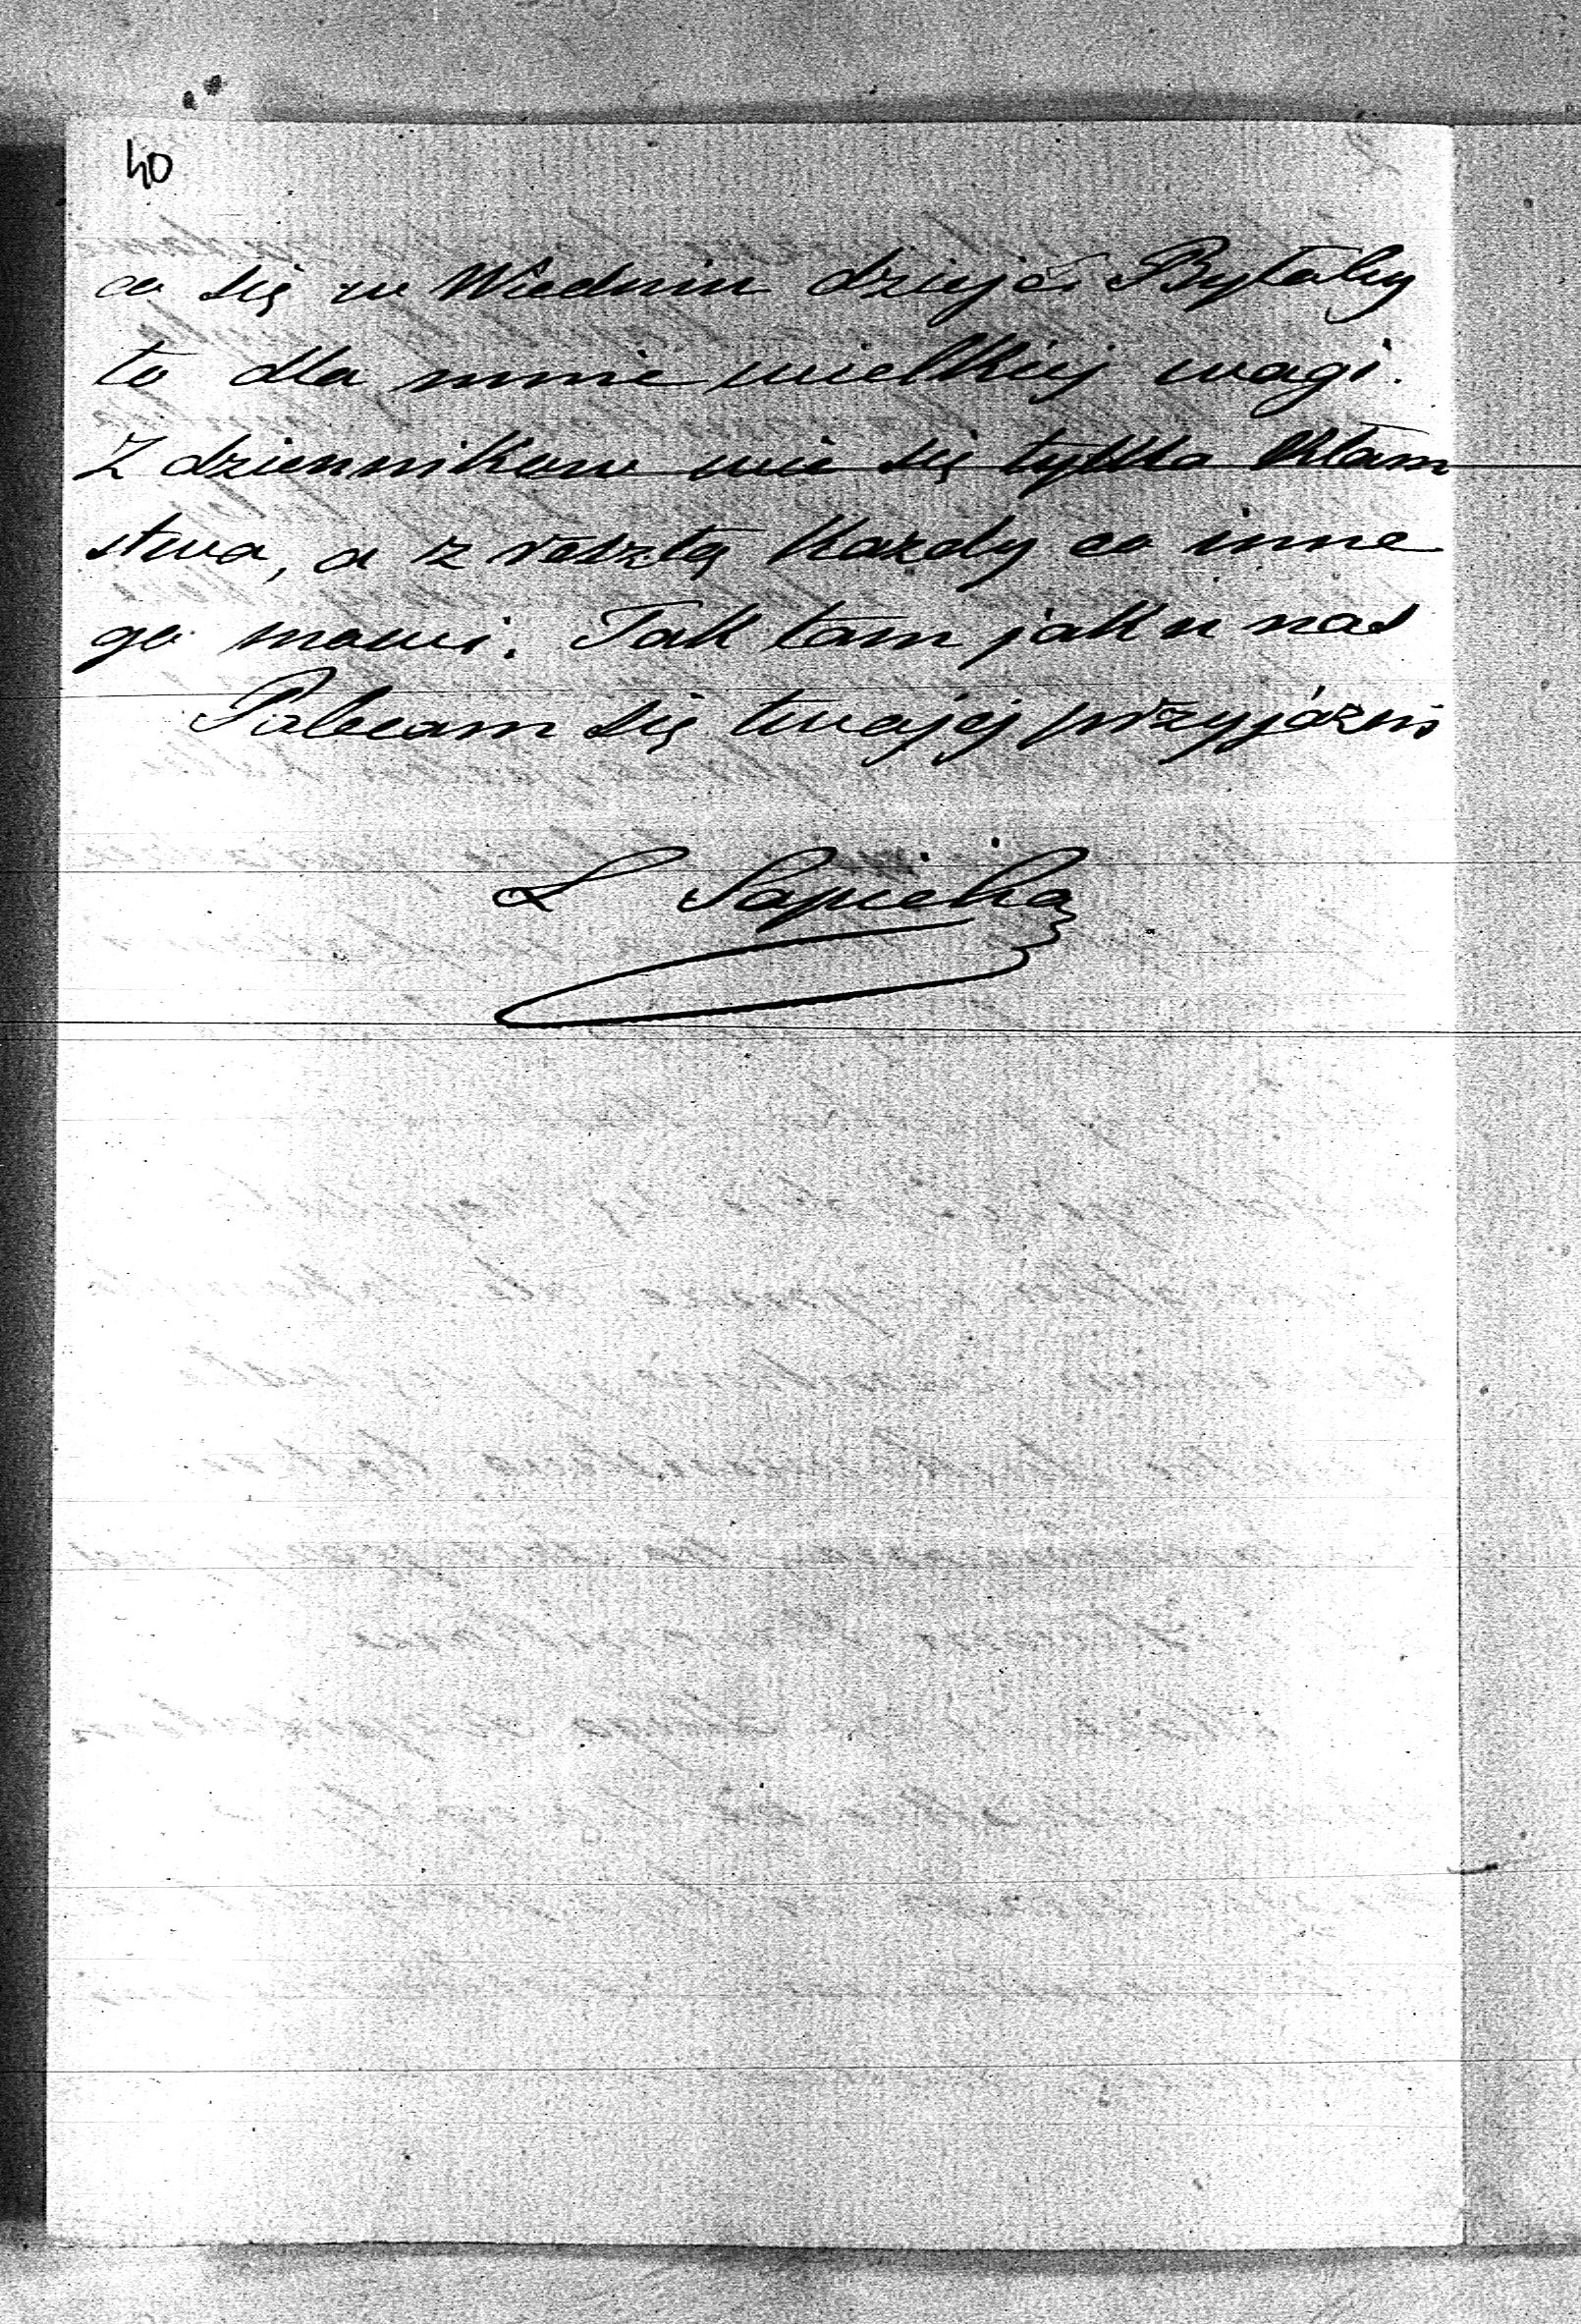 40
co się w Wiedniu dzieje. Byłoby
to dla mnie wielkiej wagi.
Z dzienników wie się tylko kłam
stwa, a z resztą każdy co inne
go mowi. Tak tam jak u nas
Polecam się twojej przyjázni
L Sapieha